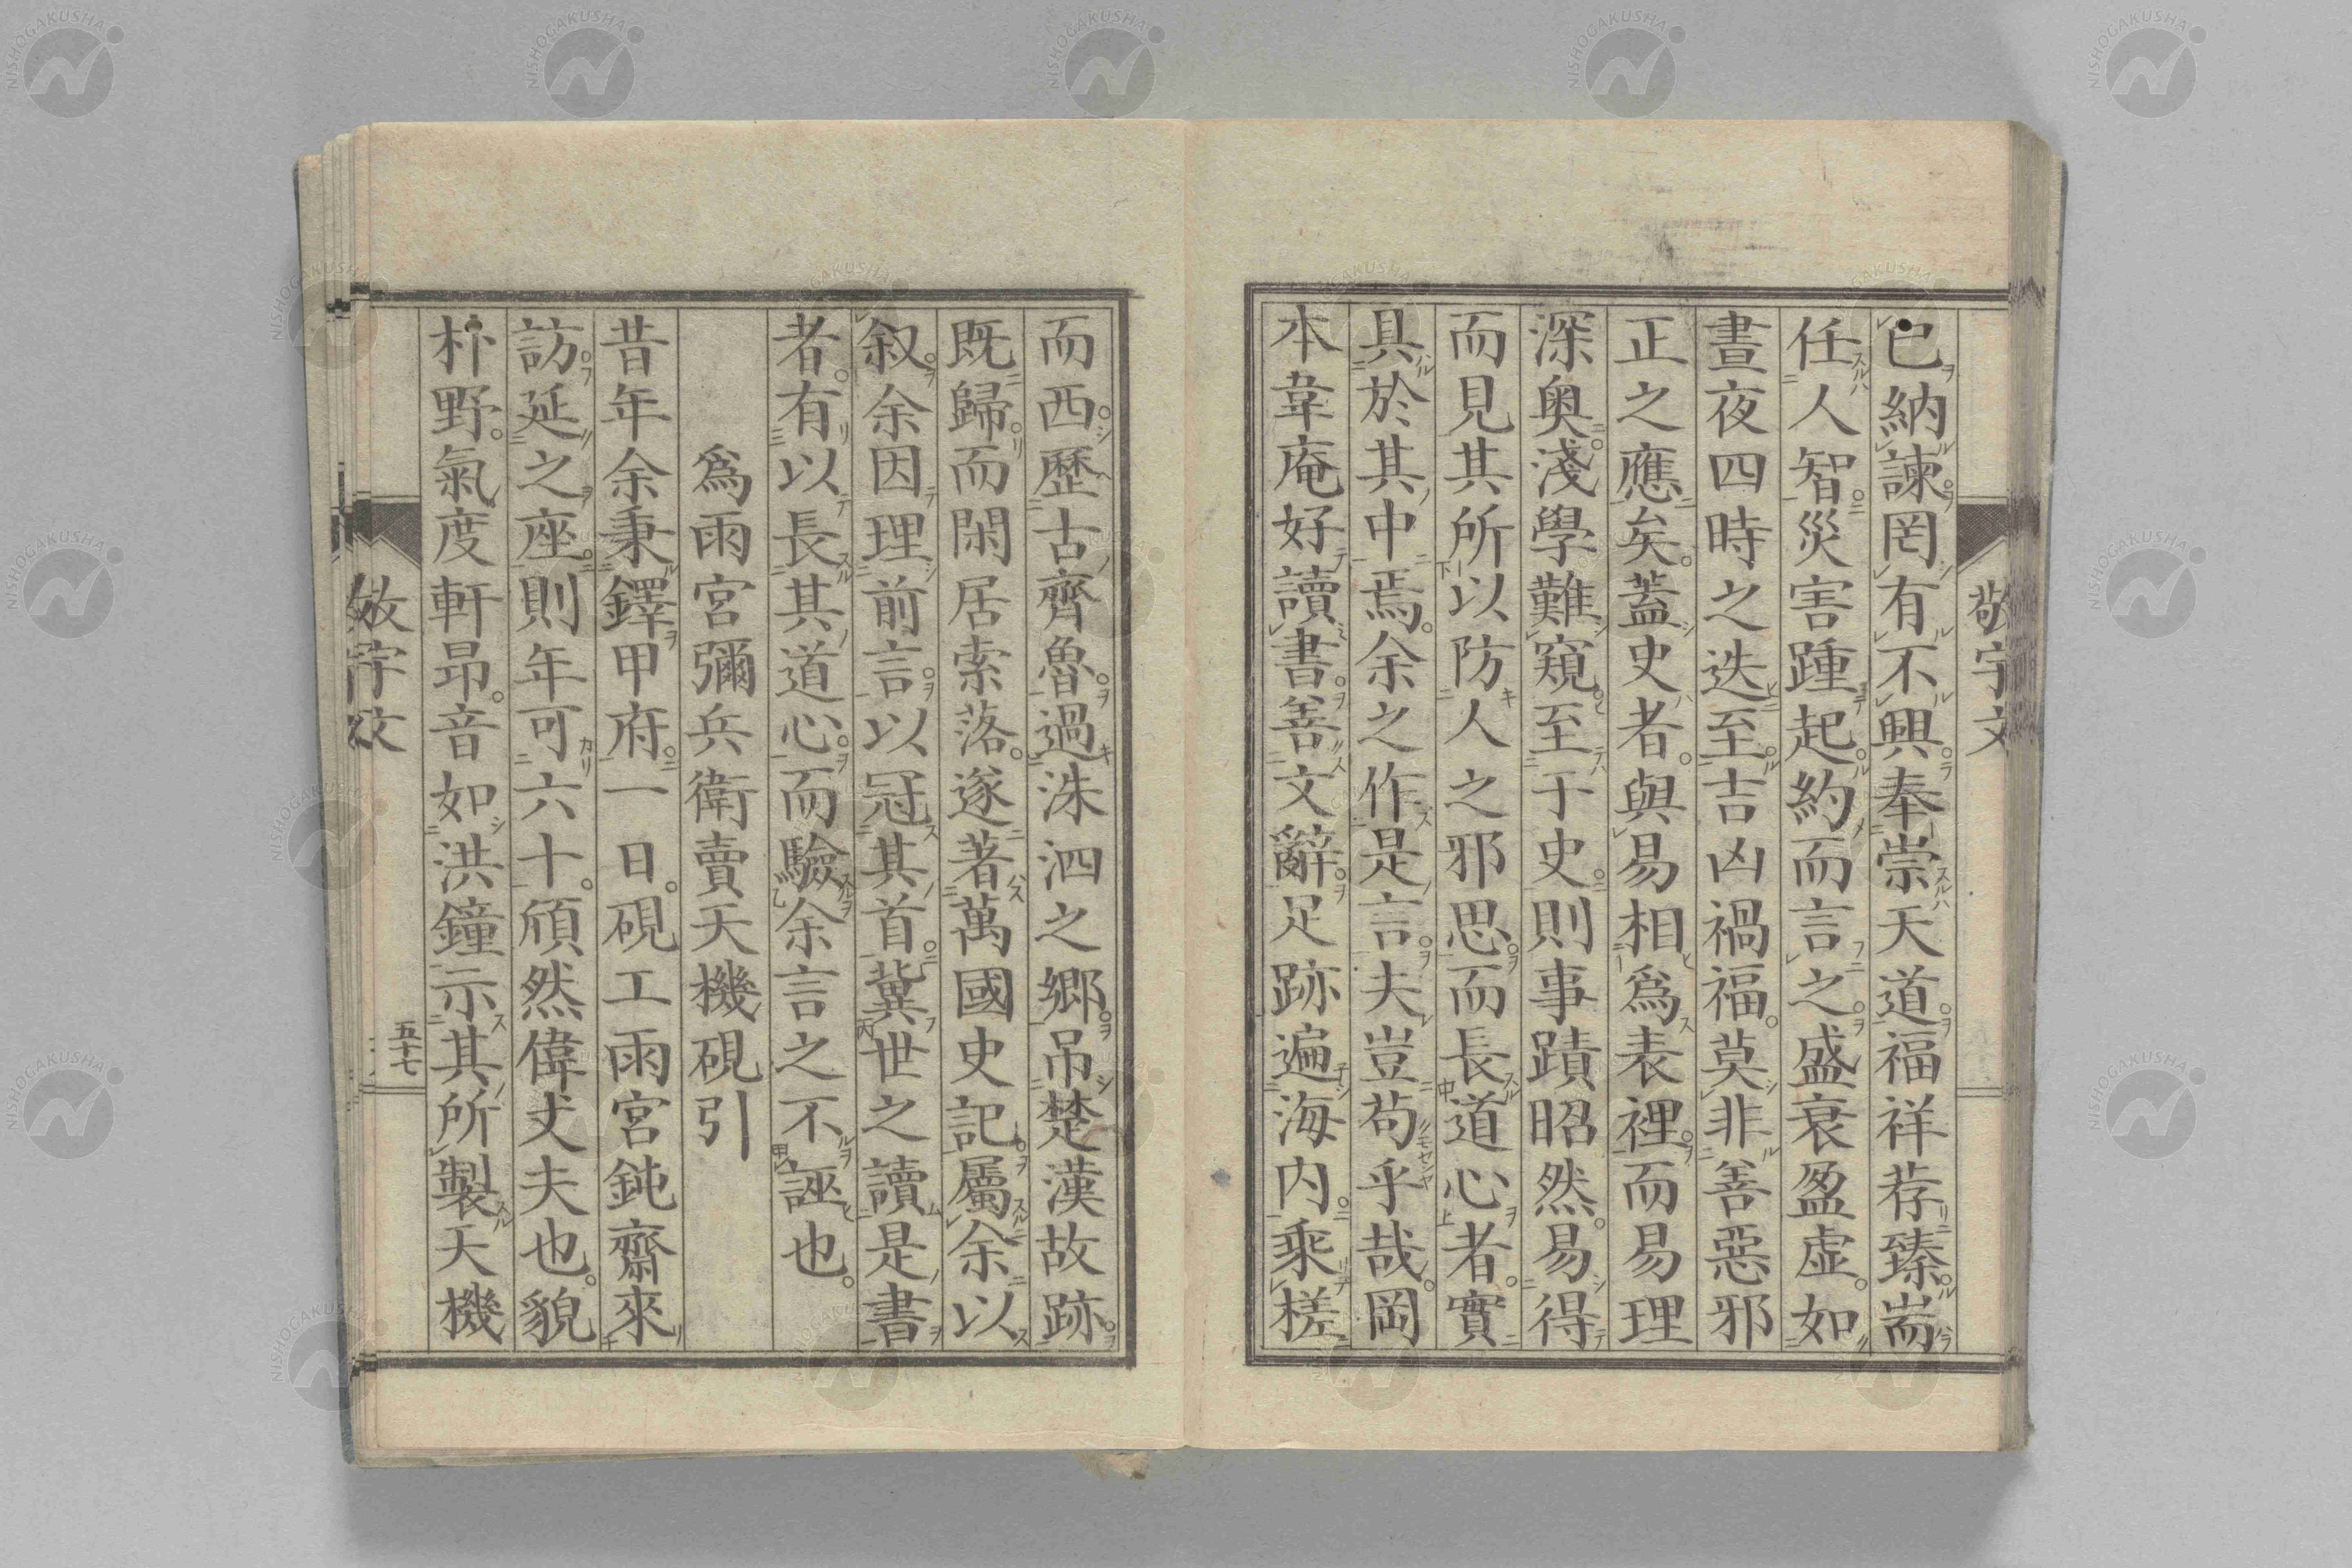 敬宇文
已納諫罔有不興奉崇天道福祥荐臻耑
任人智災害踵起約而言之盛衰盈虛如
晝夜四時之迭至吉凶禍福莫非善惡邪
正之應矣蓋史者與易相爲表裡而易理
深奧淺學難窺至于史則事蹟昭然易得
而見其所以防人之邪思而長道心者實
具於其中焉余之作是言夫豈苟乎哉岡
本韋庵好讀書善文辭足跡遍海内乘槎
而西歷古齊魯過洙泗之鄉吊楚漢故跡
既歸而閑居索落遂著萬國史記屬余以
叙余因理前言以冠其首冀世之讀是書
者有以長其道心而驗余言之不誣也
爲雨宮彌兵衛賣天機硯引
昔年余秉鐸甲府一日硯工雨宮鈍齋來
訪延之座則年可六十頎然偉丈夫也貌
朴野氣度軒昂音如洪鐘示其所製天機
敬宇文
五十七
NISHOGAKUSHA